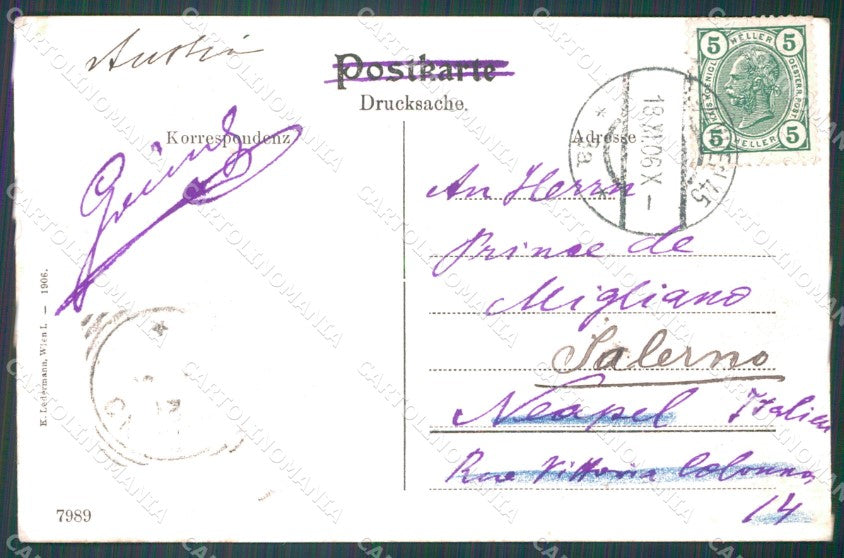 Austria
Postkarte
Drucksache.
Korrespondenz
Adresse
5 HELLER 5
5 HELLER 5
18.XI.06 X -
An Herrn
Prince de
Migliano
Salerno
Neapel Italien
Rue Vittoria Colonna
14
K. Ledermann, Wien I. — 1906.
7989
CARTOLINOMANIA